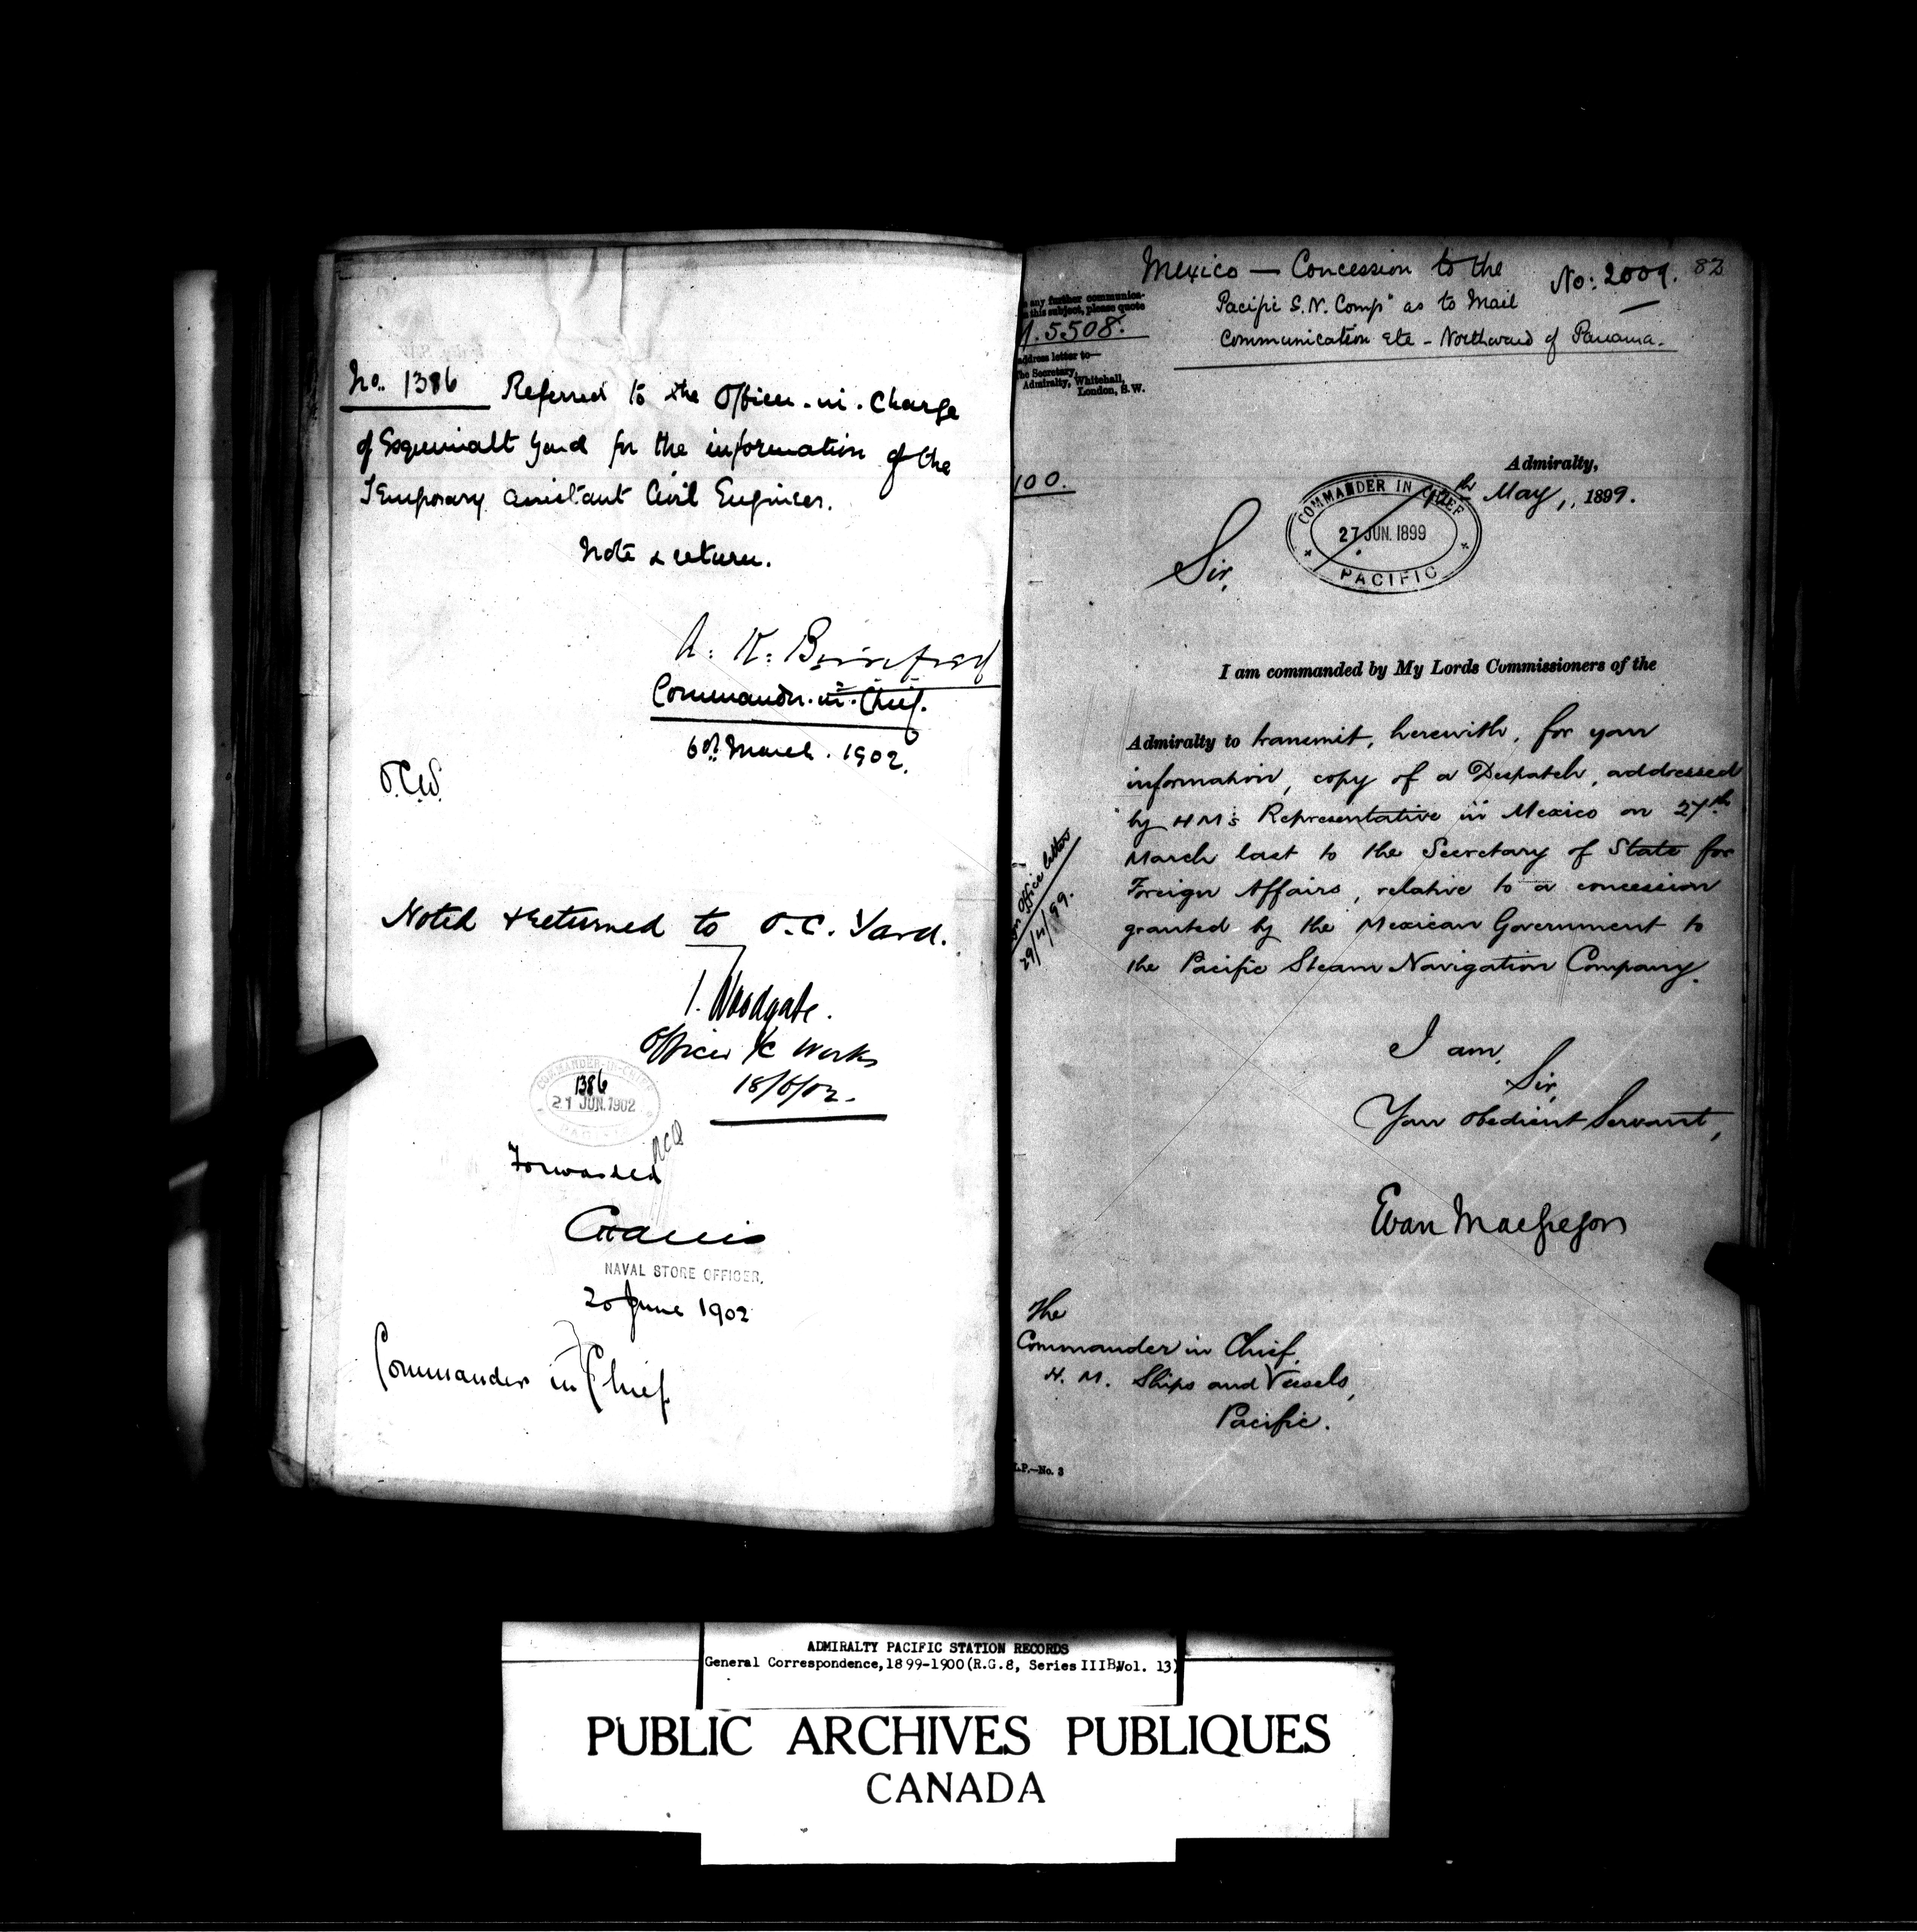 No. 1386 Referred to the Officer-in-Charge
of Esquimalt Yard for the information of the
Temporary Assistant Civil Engineer.
Note & return.
Commander-in-Chief.
6th March. 1902.
O.C.W.
Noted & returned to O.C. Yard.
Woodgate.
Officer i/c Works
18/6/02.
COMMANDER-IN-CHIEF
1386
21 JUN. 1902
PACIFIC
Forwarded
NAVAL STORE OFFICER.
20 June 1902
Commander in Chief
Mexico — Concession to the
No: 2009.
Pacific S.N. Compy as to Mail
Communication Etc - Northward of Panama.
any further communica-
this subject, please quote
M.5508.
address letter to—
The Secretary,
Admiralty, Whitehall,
London, S.W.
100.
Admiralty,
May, 1899.
COMMANDER IN CHIEF
27 JUN. 1899
PACIFIC
Sir,
I am commanded by My Lords Commissioners of the
Admiralty to transmit, herewith, for your
information, copy of a Despatch, addressed
by H M's Representative in Mexico on 27th
March last to the Secretary of State for
Foreign Affairs, relative to a concession
granted by the Mexican Government to
the Pacific Steam Navigation Company.
Office letter
29/4/99.
I am,
Sir,
Your obedient Servant,
Evan MacGregor
The
Commander in Chief,
H. M. Ships and Vessels,
Pacific.
L.P.—No. 3
ADMIRALTY PACIFIC STATION RECORDS
General Correspondence, 1899-1900 (R.G.8, Series IIIB, Vol. 13)
PUBLIC ARCHIVES PUBLIQUES
CANADA